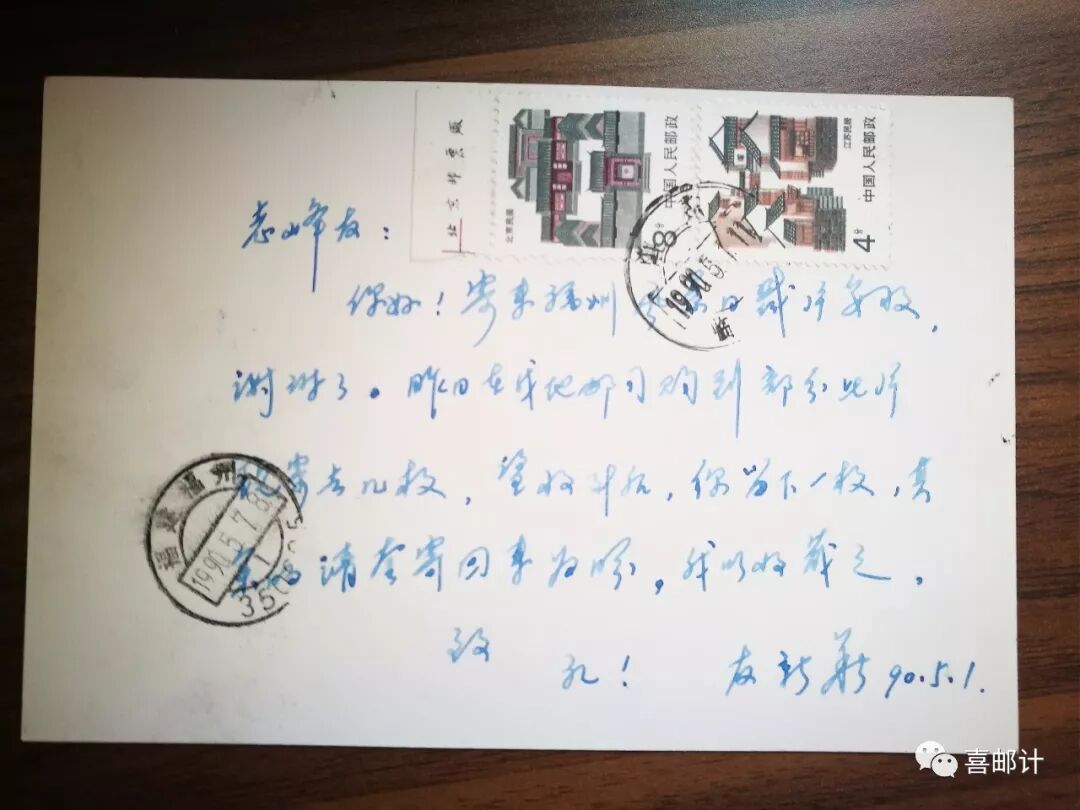 北京邮票厂
北京民居
8分
中国人民邮政
江苏民居
4分
中国人民邮政
志峰友：
你好！寄来福州 日戳片多枚，
谢谢了。昨日在我地邮司购到部分此片
寄去几枚，望收到后，你留下一枚，其
请寄回来为盼，我以收藏之。
致
礼！ 友新 90.5.1.
1990.5.
福建福州
1990.5.7.8
1
350
喜邮计